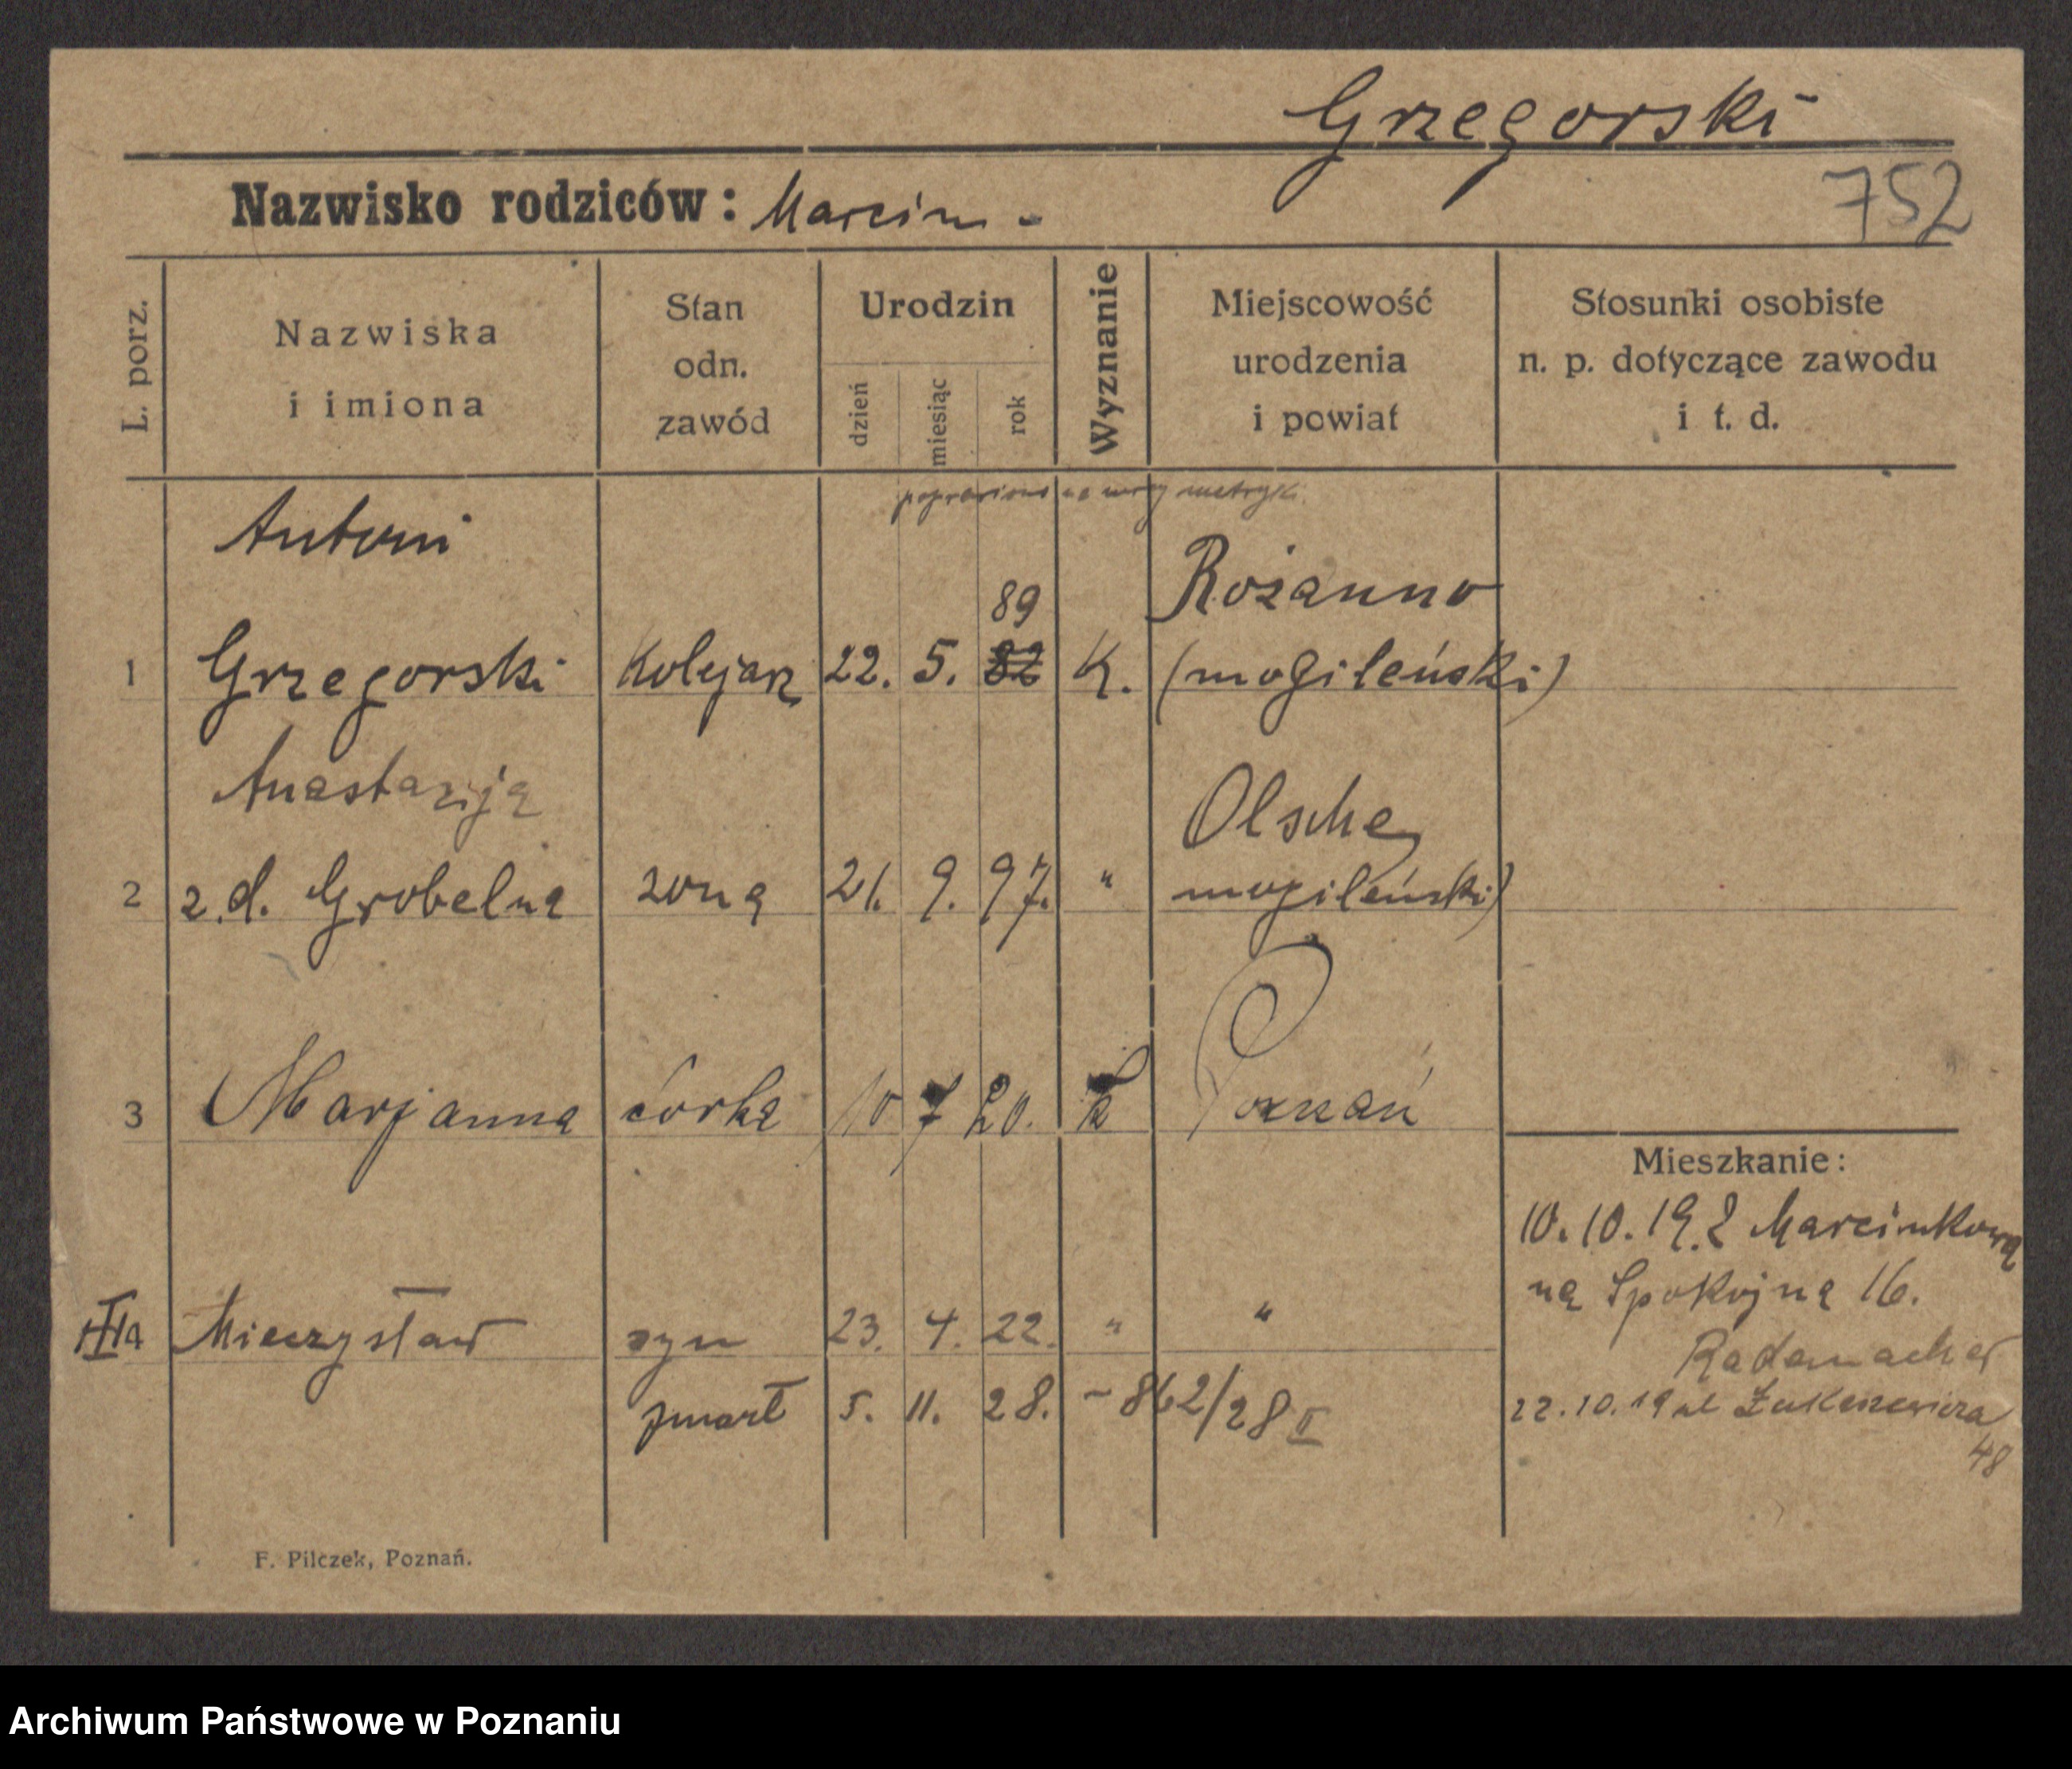 Grzegorski
Nazwisko rodziców: Marcin -
752
L. porz.
Nazwiska
i imiona
Stan
odn.
zawód
Urodzin
dzień
miesiąc
rok
Wyznanie
Miejscowość
urodzenia
i powiat
Stosunki osobiste
n. p. dotyczące zawodu
i t. d.
poprawiono na metryki
Antoni
89
Rożanno
1 Grzegorski Kolejarz 22. 5. 82 K. (mogileński)
Anastazja
Olsche
2 z.d. Grobelna żona 21. 9. 97. " mogileński)
3 Marjanna córka 10 7 20. k Poznań
4 Mieczysław syn 23. 4. 22. " "
zmarł 5. 11. 28. - 862/28 II
Mieszkanie:
10.10.19. Marcinkowa
na Spokojna 16.
22.10.19 ul Łukaszewicza
48
F. Pilczek, Poznań.
Archiwum Państwowe w Poznaniu